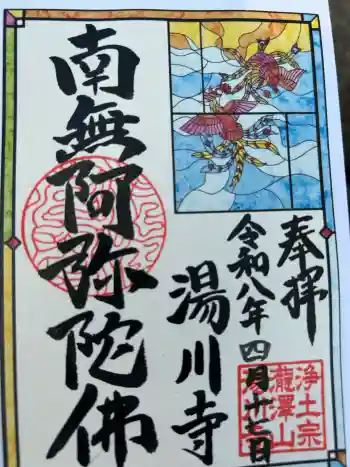 奉拝
令和八年四月廿日
湯川寺
南無阿弥陀佛
浄土宗
瀧澤山